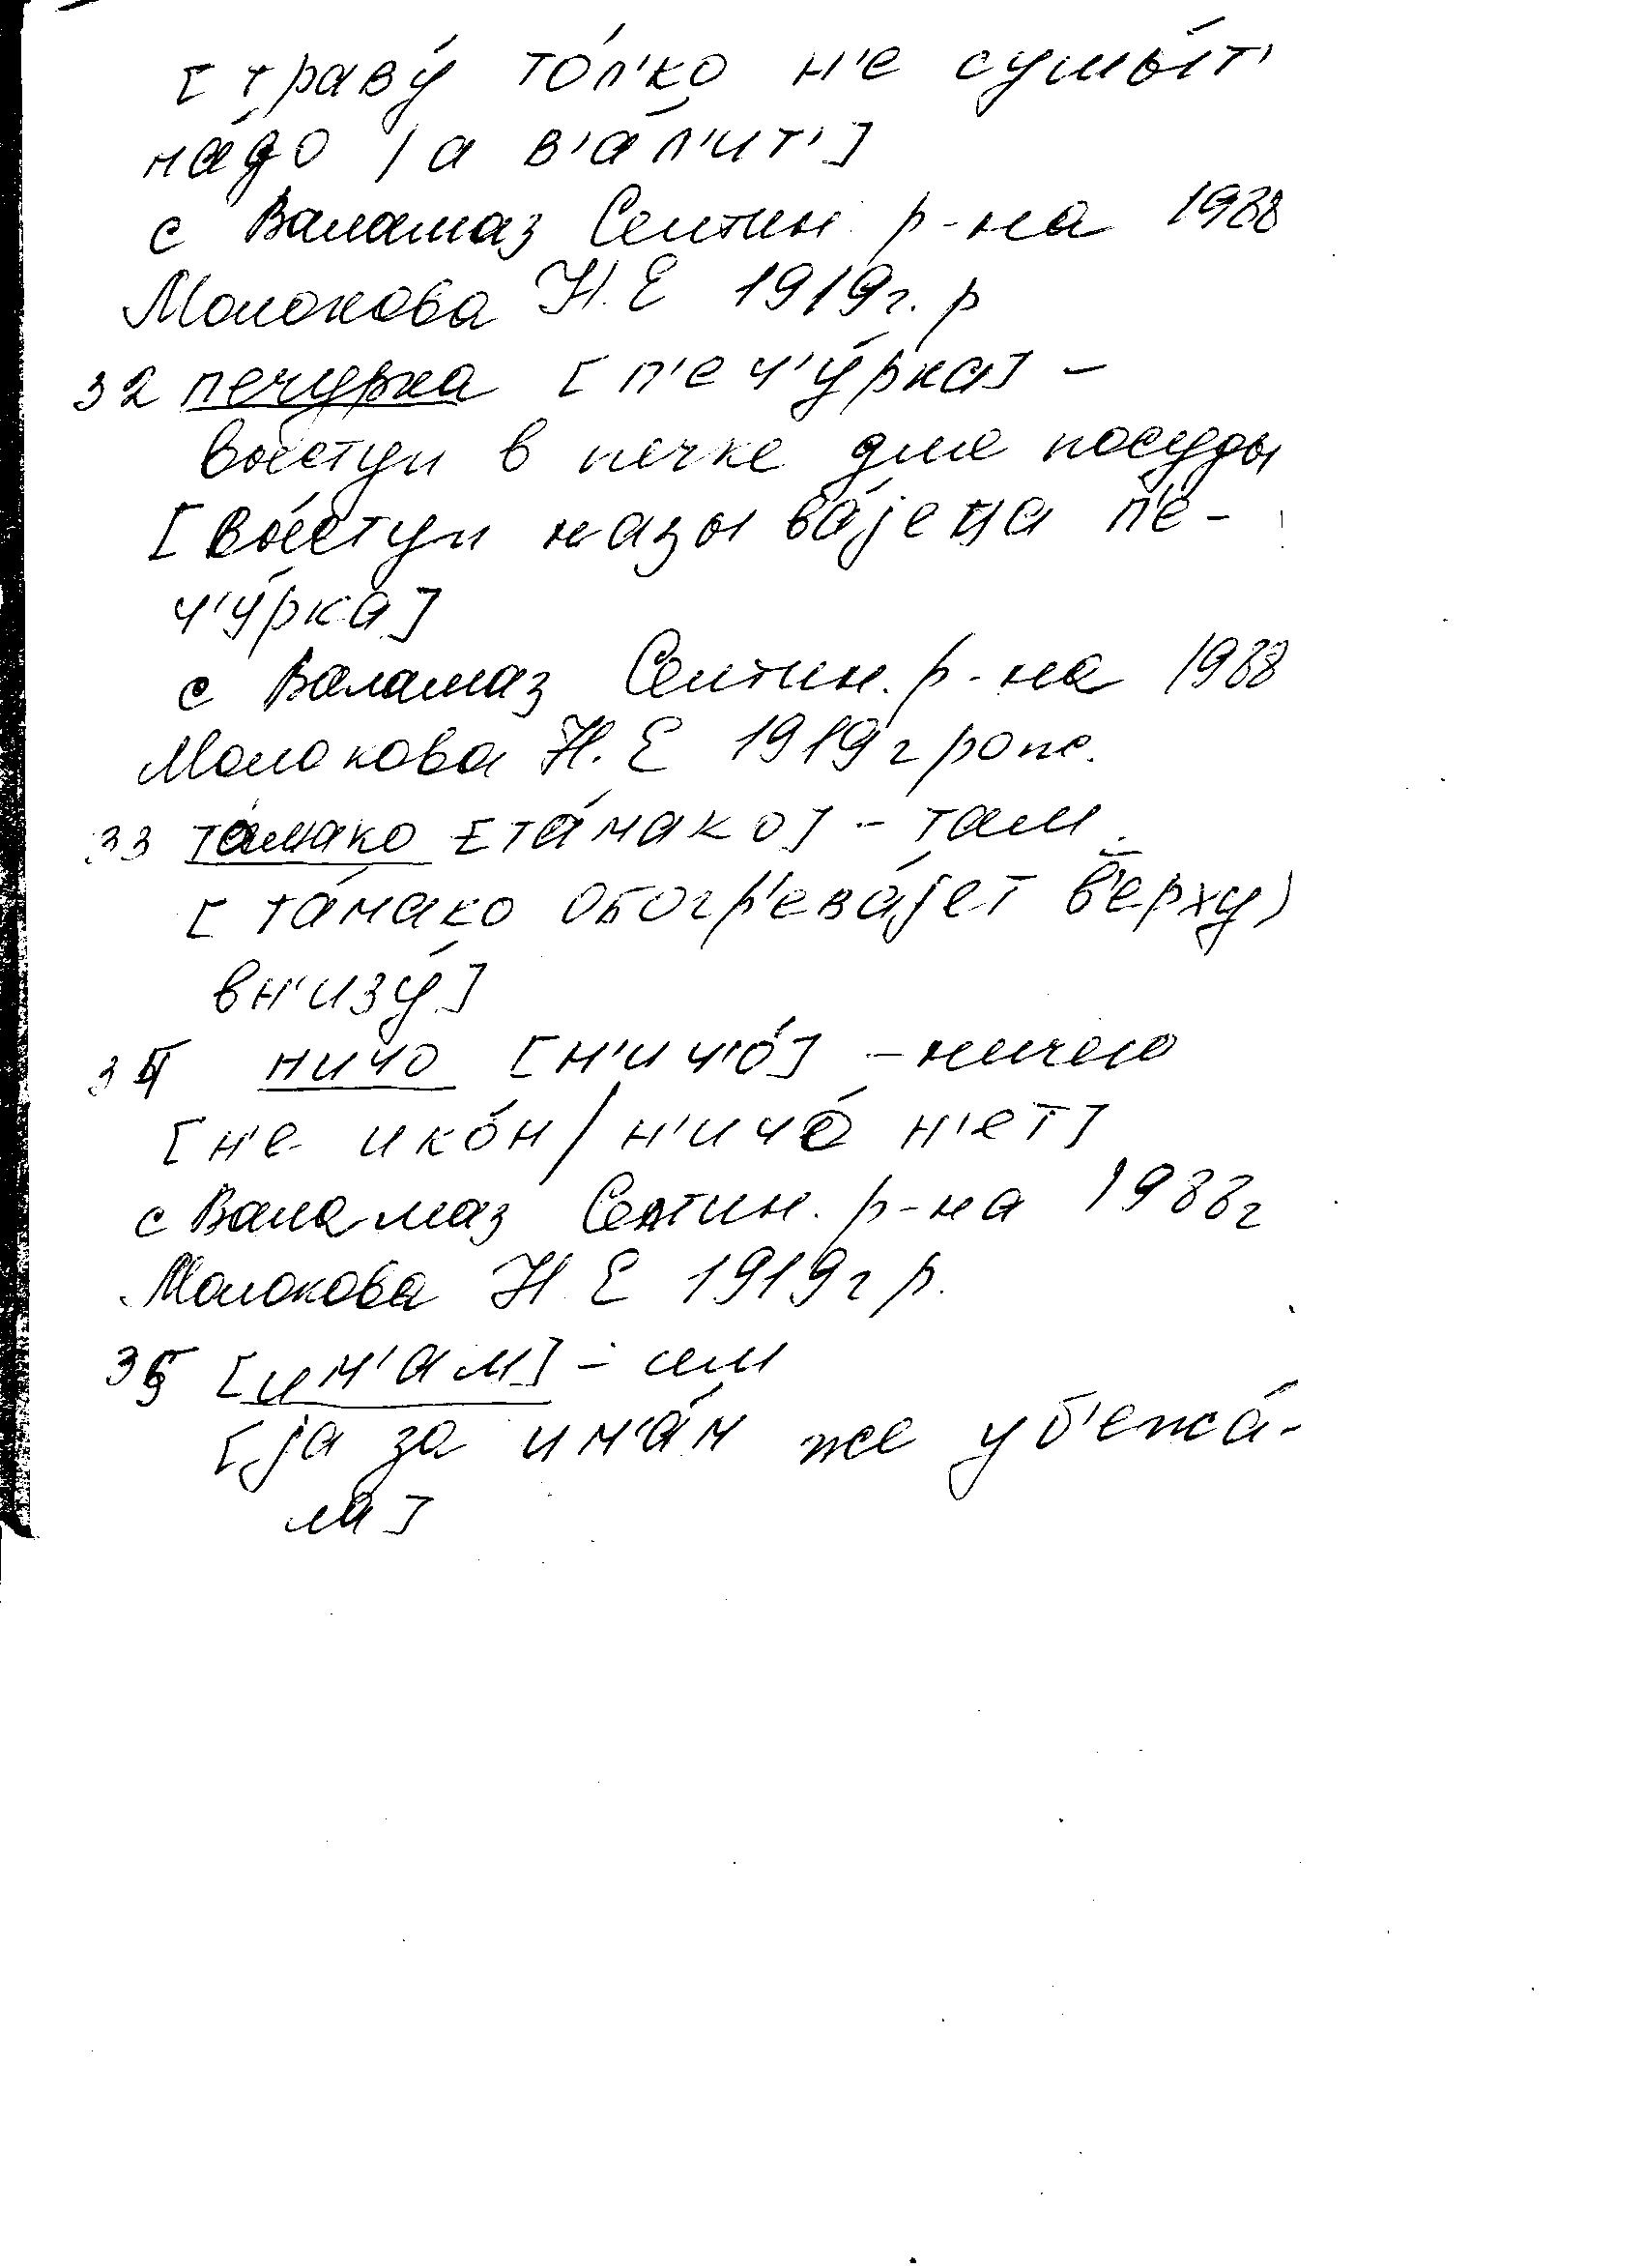 [траву́ то́л'ко н'е сушы́т'
на́до / а в'а́л'ит']
с Валамаз Селтин. р-на 1988
Молокова Н.Е 1919г. р
32 печурка [п'еч'у́рка] –
выступ в печке для посуды
[вы́ступ называ́jеца п'е-
ч'у́рка]
с Валамаз Селтин. р-на 1988
Молокова Н.Е 1919г рожд.
33 та́мако [та́мако] – там
[та́мако обогр'ева́jет в'ерху́)
вн'изу́]
34 ничо [н'ич'о́] – ничего
[н'е ико́н / н'ичо́ н'ет]
с Валамаз Селтин. р-на 1988г
Молокова Н Е 1919г р.
35 [им'ам] – им
[jа за им'а́м же уб'ежа́-
ла]